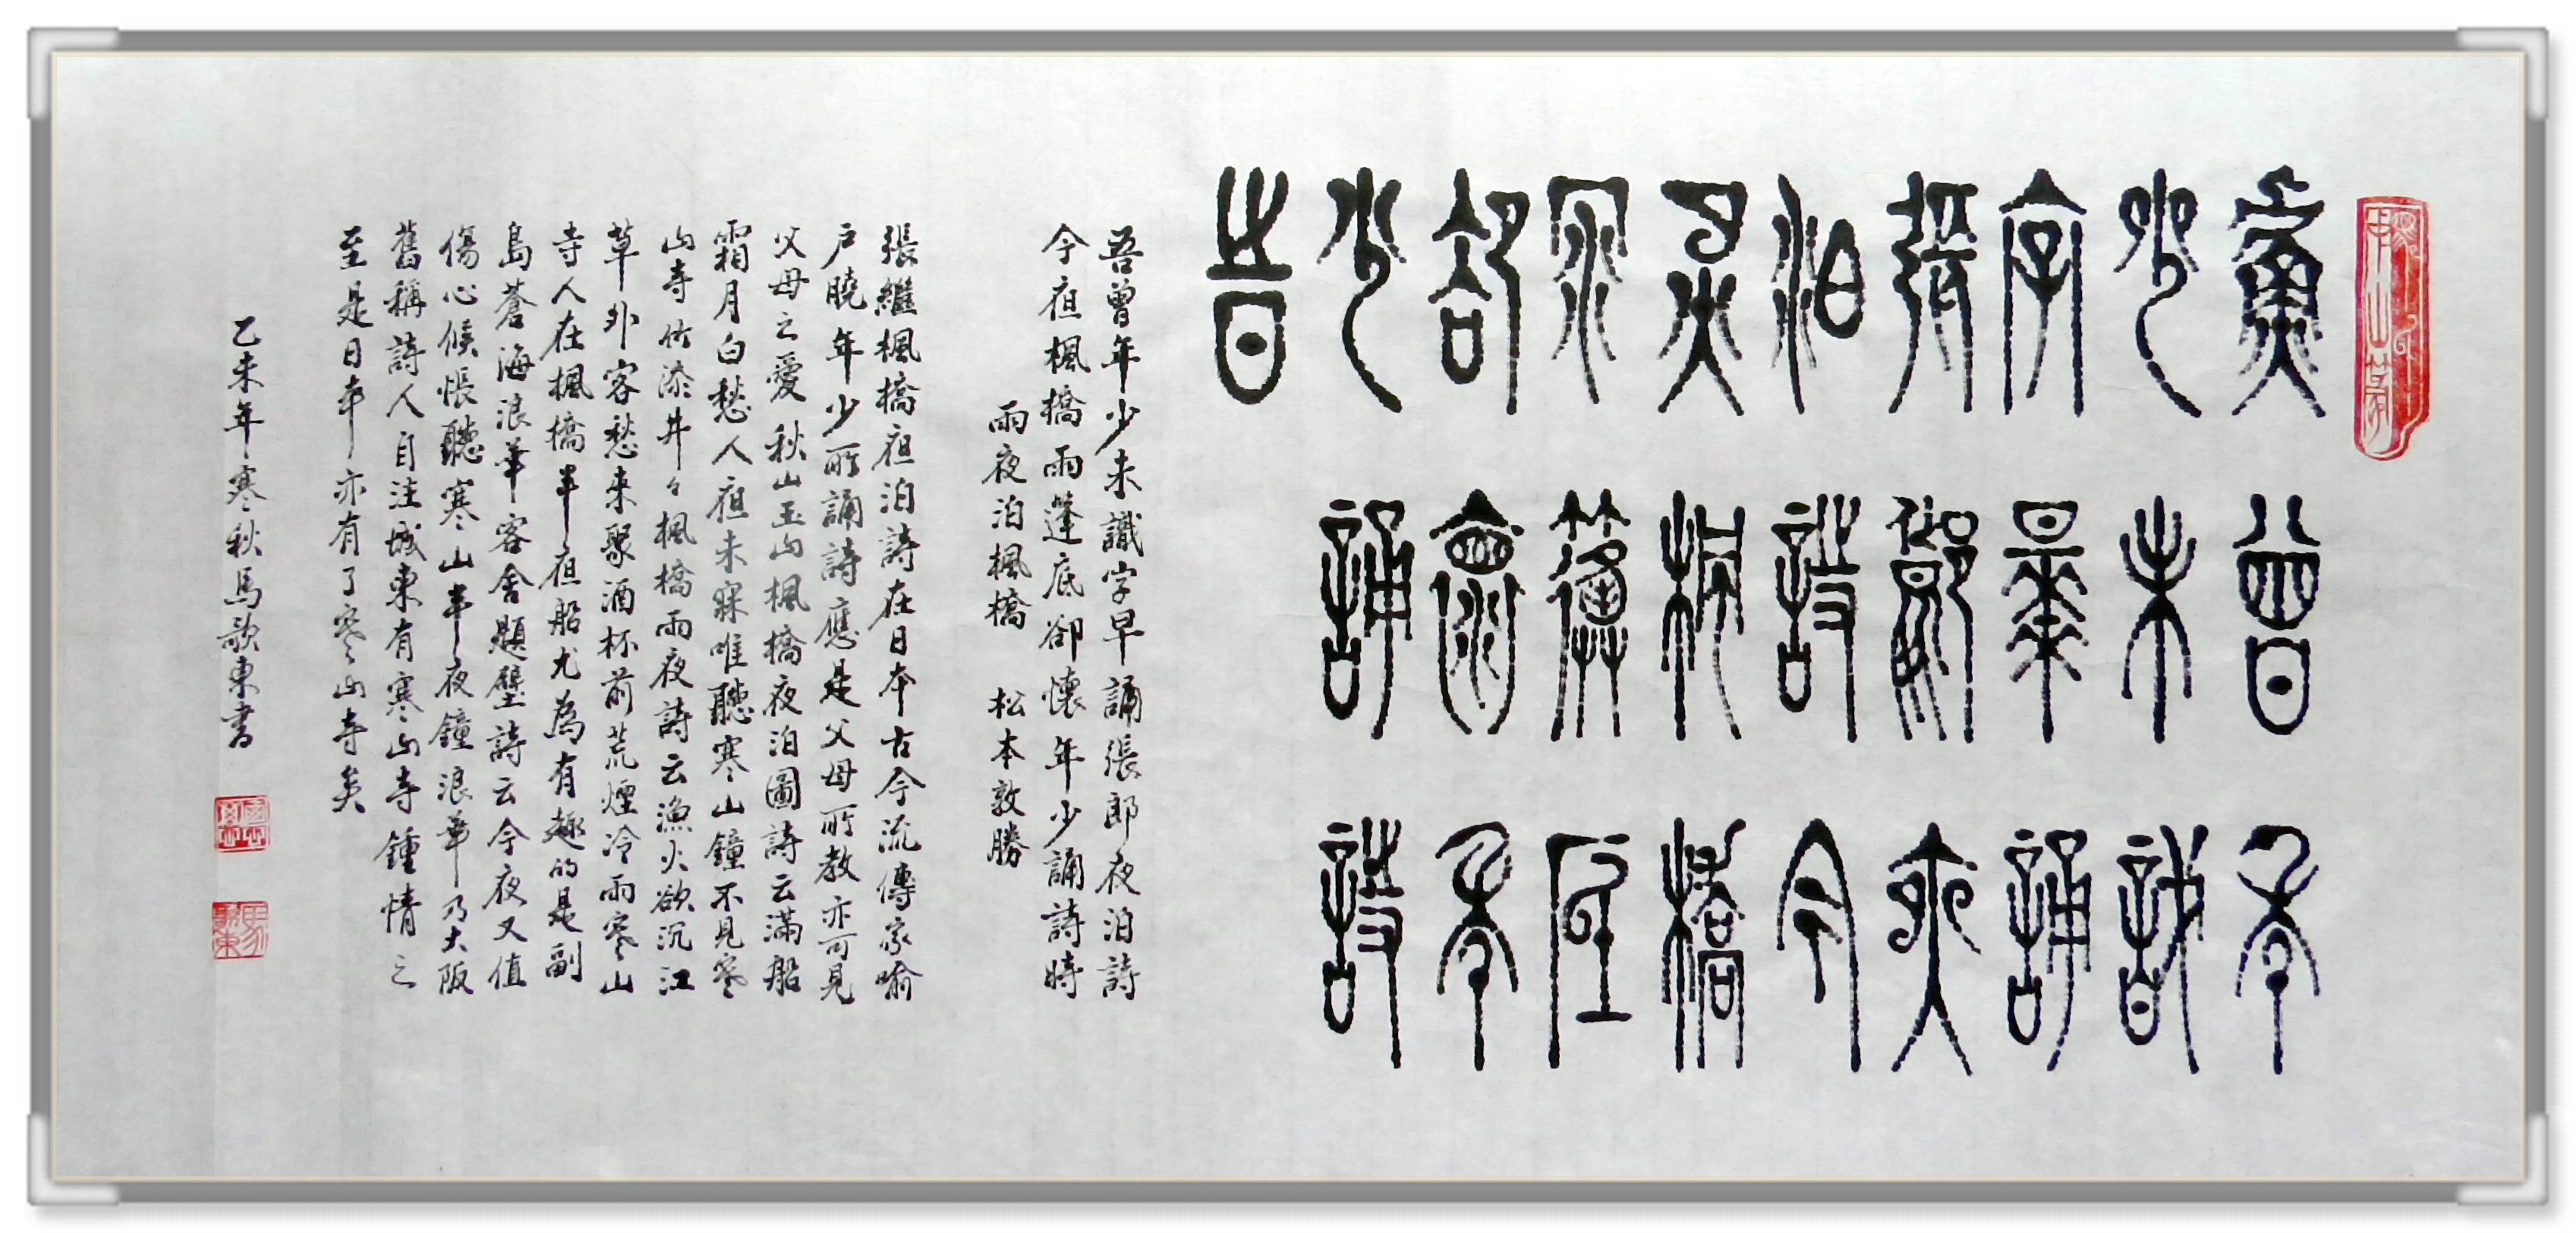 吾曾年
少未識
字早誦
張郎夜
泊詩今
夜楓橋
雨篷底
卻懷年
少誦詩
時
吾曾年少未識字早誦張郎夜泊詩
今夜楓橋雨蓬底卻懷年少誦詩時
雨夜泊楓橋 松本敦勝
張繼楓橋夜泊詩在日本古今流傳家喻
戶曉年少所誦詩應是父母所教亦可見
父母之愛秋山玉山楓橋夜泊圖詩云滿船
霜月白愁人夜未寐唯聽寒山鐘不見寒
山寺竹添井々楓橋雨夜詩云漁火欲沉江
草外客愁來聚酒杯前荒煙冷雨寒山
寺人在楓橋半夜船尤為有趣的是副
島蒼海浪華客舍題壁詩云今夜又值
傷心候悵聽寒山半夜鐘浪華乃大阪
舊稱詩人自注城東有寒山寺鍾情之
至是日本亦有了寒山寺矣
乙未年寒秋馬歌東書